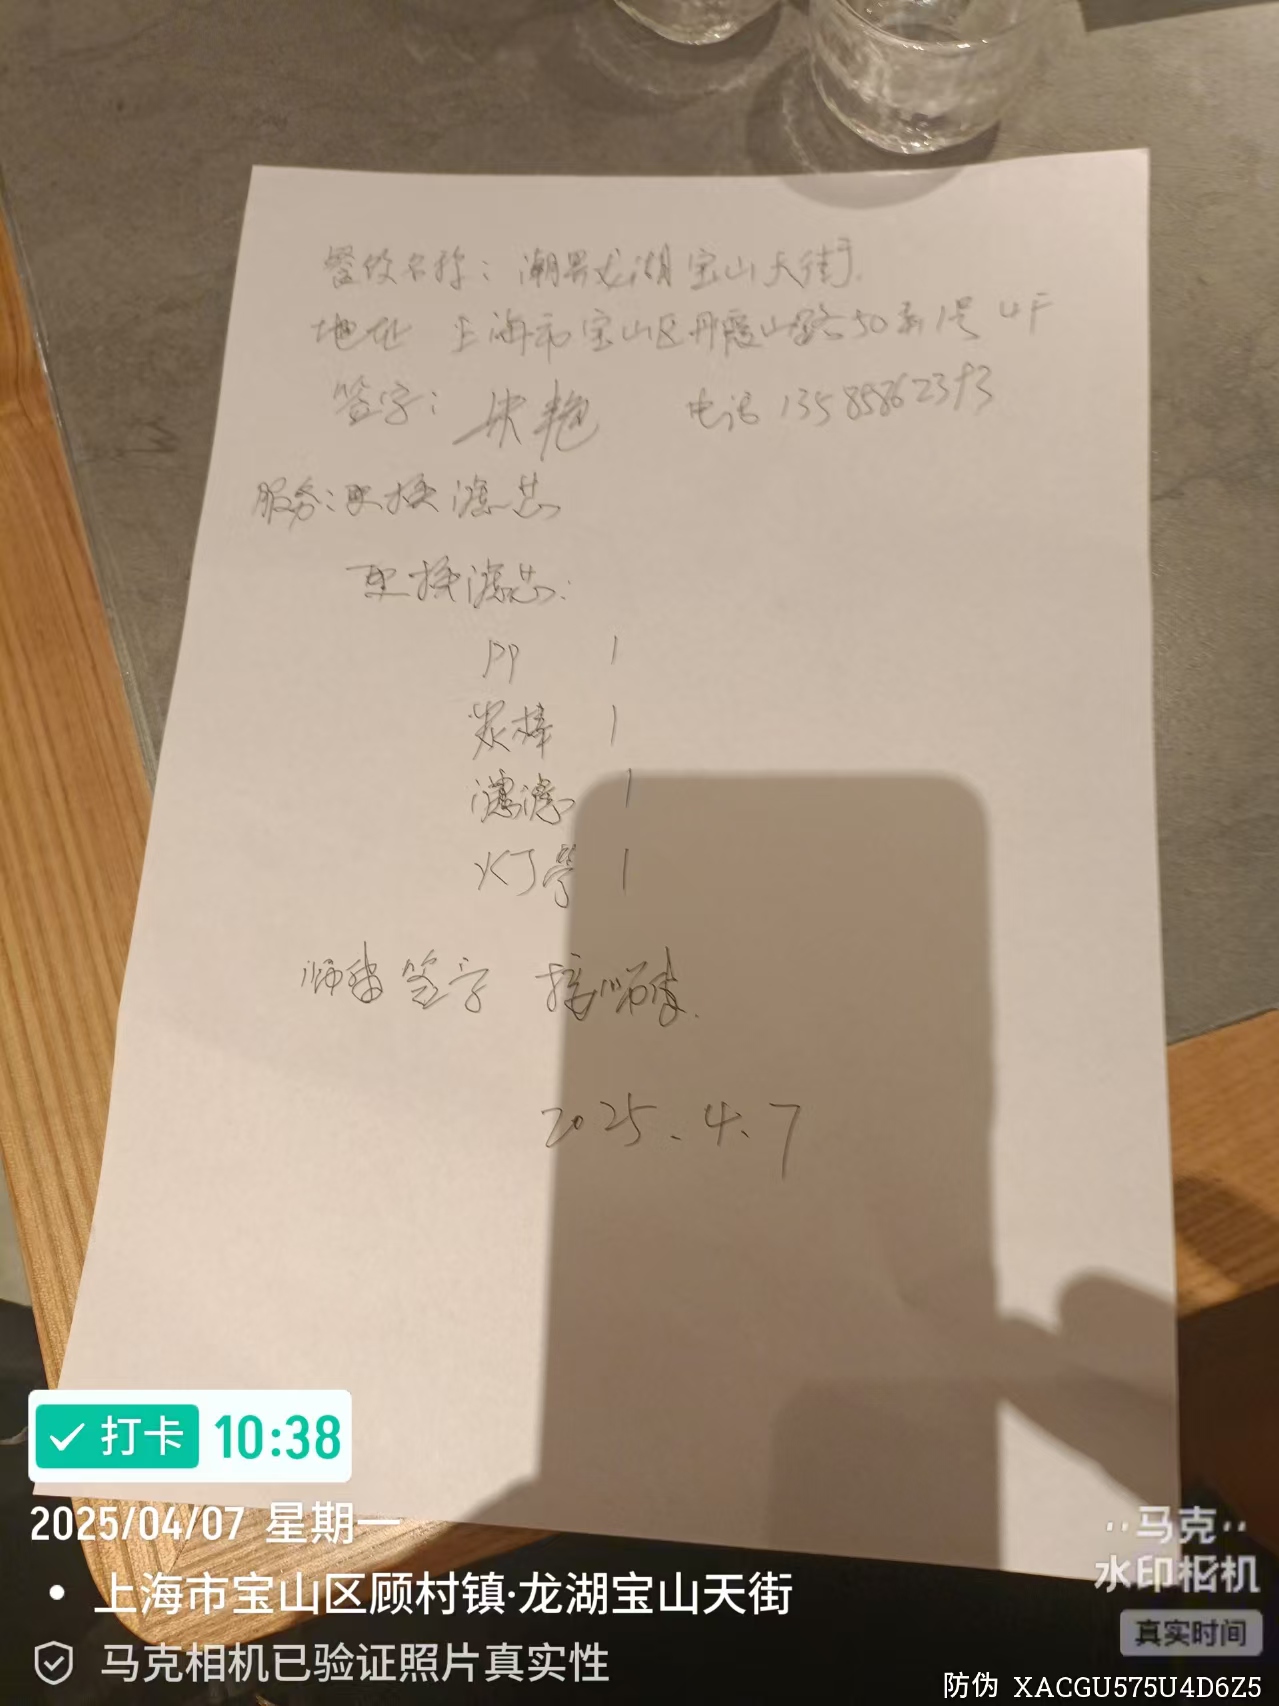 餐饮名称：潮界龙湖宝山天街
地址 上海市宝山区丹霞山路50弄1号 4F
签字： 艳 电话 13585862393
服务：更换滤芯
更换滤芯：
PP 1
炭棒 1
滤 1
1
师傅签字
2025.4.7
打卡 10:38
2025/04/07 星期一
上海市宝山区顾村镇·龙湖宝山天街
马克相机已验证照片真实性
马克
水印相机
真实时间
防伪 XACGU575U4D6Z5